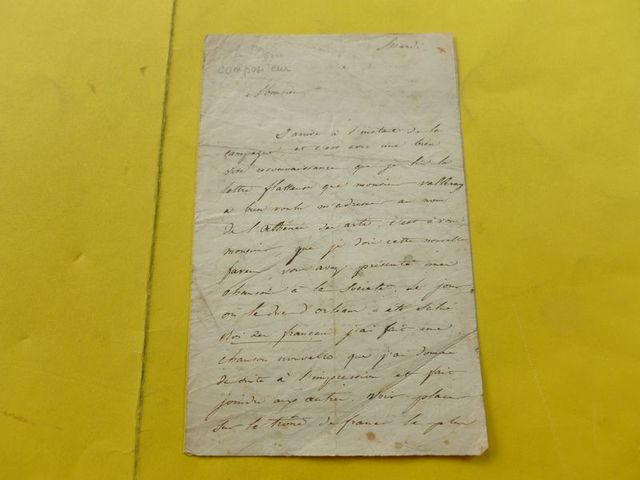 Mardi
compositeur
Monsieur
J'arrive à l'instant de la
campagne et c'est avec une bien
vive reconnaissance que je lis la
lettre flatteuse que monsieur
a bien voulu m'adresser au nom
de l'athénée des arts, c'est à vous
monsieur, que je dois cette nouvelle
faveur, vous avez présenté mes
chanson à la société. Le jour
où le duc d'orléans a été salué
Roi des français j'ai fait une
chanson nouvelle que j'ai donné
de suite à l'impression et fait
joindre aux autres. Voir placer
sur le trône de france le plus